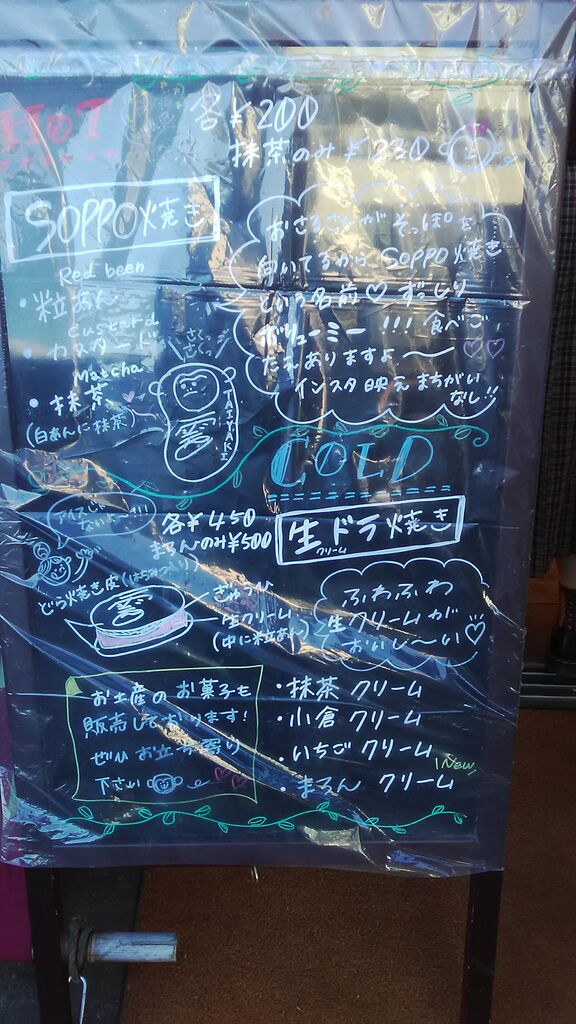 HOT
各¥200
抹茶のみ¥230
SOPPO焼き
Red been
・粒あん
custard
・カスタード
Maccha
・抹茶
(白あんに抹茶)
おさるさんがそっぽを
向いてるからSOPPO焼き
という名前♡ ずっしり
ボリューミー!!! 食べご
たえありますよ〜♡♡
インスタ映えまちがい
なし!!
さくっ
さくっ
TAIYAKI
COLD
アイスじゃ
ないよー!!!
各¥450
まろんのみ¥500
生ドラ焼き
クリーム
どら焼き皮(はちみつ入り)
ぎゅうひ
生クリーム
(中に粒あん)
ふわふわ
生クリームが
おいし〜い♡
お土産のお菓子も
販売しております!
ぜひお立ち寄り
下さい
・抹茶クリーム
・小倉クリーム
・いちごクリーム
New
・まろんクリーム